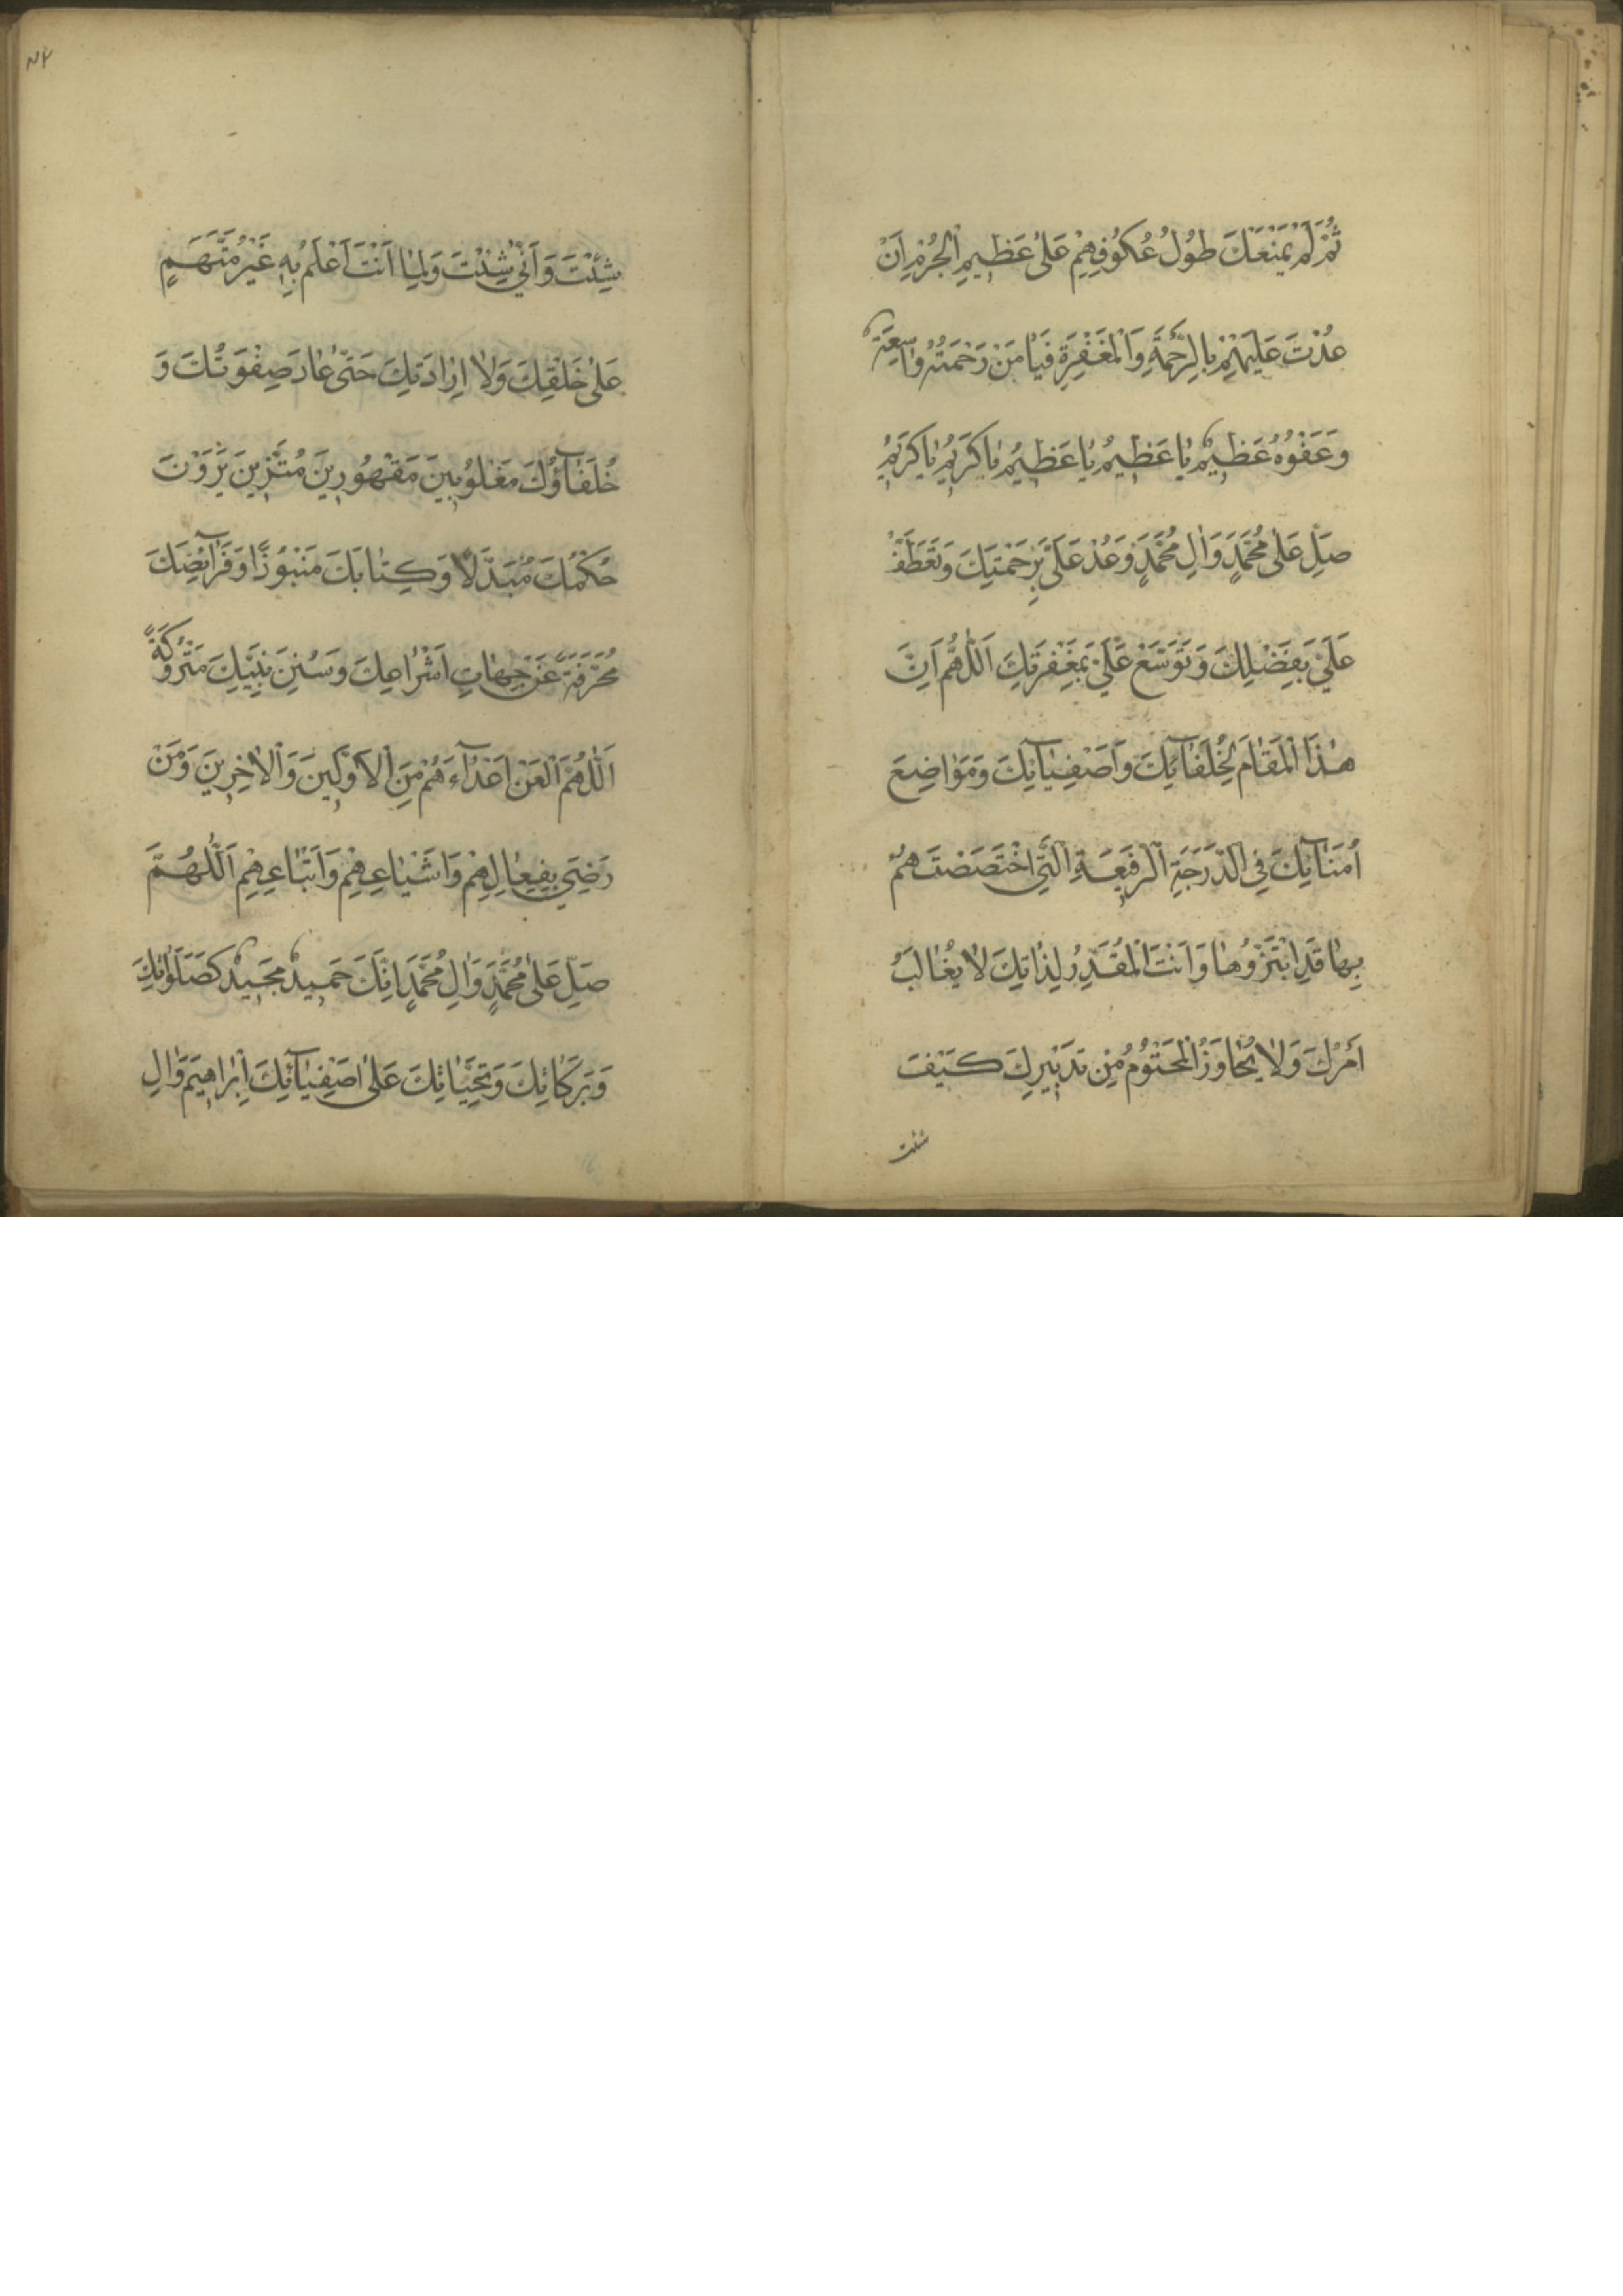 ثُمَّ لَمْ يَمْنَعْكَ طُولُ عُكُوفِهِمْ عَلىٰ عَظِيمِ الْجُرْمِ اَنْ
عُدْتَ عَلَيْهِمْ بِالرَّحْمَةِ وَالْمَغْفِرَةِ فَيٰا مَنْ رَحْمَتُهُ وٰاسِعَةٌ
وَعَفْوُهُ عَظِيمٌ يٰا عَظِيمُ يٰا عَظِيمُ يٰا كَرِيمُ يٰا كَرِيمُ
صَلِّ عَلىٰ مُحَمَّدٍ وَاٰلِ مُحَمَّدٍ وَعُدْ عَلَيَّ بِرَحْمَتِكَ وَتَعَطَّفْ
عَلَيَّ بِفَضْلِكَ وَتَوَسَّعْ عَلَيَّ بِمَغْفِرَتِكَ اَللّٰهُمَّ اِنَّ
هٰذَا الْمَقٰامَ لِخُلَفٰآئِكَ وَاَصْفِيٰآئِكَ وَمَوٰاضِعَ
اُمَنٰآئِكَ فِي الدَّرَجَةِ الرَّفِيعَةِ الَّتِي اخْتَصَصْتَهُمْ
بِهٰا قَدِ ابْتَزُّوهٰا وَاَنْتَ الْمُقَدِّرُ لِذٰلِكَ لاٰ يُغٰالَبُ
اَمْرُكَ وَلاٰ يُجٰاوَزُ الْمَحْتُومُ مِنْ تَدْبِيرِكَ كَيْفَ
شئت
شِئْتَ وَاَنّٰى شِئْتَ وَلِمٰا اَنْتَ اَعْلَمُ بِهِ غَيْرُ مُتَّهَمٍ
عَلىٰ خَلْقِكَ وَلاٰ اِرٰادَتِكَ حَتّٰى عٰادَ صِفْوَتُكَ وَ
خُلَفٰآؤُكَ مَغْلُوبِينَ مَقْهُورِينَ مُبْتَزِّينَ يَرَوْنَ
حُكْمَكَ مُبَدَّلاً وَكِتٰابَكَ مَنْبُوذًا وَفَرٰآئِضَكَ
مُحَرَّفَةً عَنْ جِهٰاتِ اَشْرٰاعِكَ وَسُنَنَ نَبِيِّكَ مَتْرُوكَةً
اَللّٰهُمَّ الْعَنْ اَعْدٰآءَهُمْ مِنَ الْاَوَّلِينَ وَالْاٰخِرِينَ وَمَنْ
رَضِيَ بِفِعٰالِهِمْ وَاَشْيٰاعِهِمْ وَاَتْبٰاعِهِمْ اَللّٰهُمَّ
صَلِّ عَلىٰ مُحَمَّدٍ وَاٰلِ مُحَمَّدٍ اِنَّكَ حَمِيدٌ مَجِيدٌ كَصَلَوٰاتِكَ
وَبَرَكٰاتِكَ وَتَحِيّٰاتِكَ عَلىٰ اَصْفِيٰآئِكَ اِبْرٰاهِيمَ وَاٰلِ